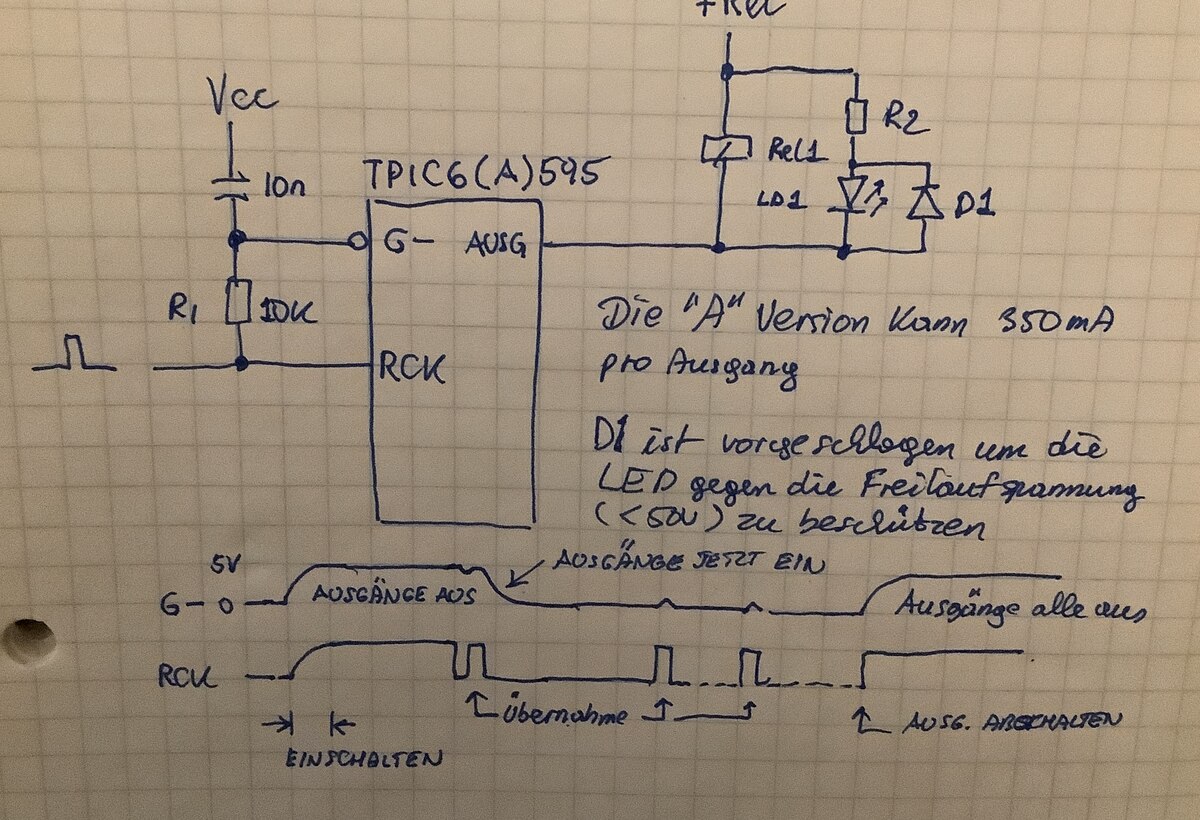 +Rel
Vcc
10n
TPIC6(A)595
R2
Rel1
LD1
D1
G-
AUSG
R1
10K
RCK
Die "A" Version kann 350mA
pro Ausgang
D1 ist vorgeschlagen um die
LED gegen die Freilaufspannung
(<50V) zu beschützen
5V
AUSGÄNGE JETZT EIN
G- 0
AUSGÄNGE AUS
Ausgänge alle aus
RCK
Übernahme
AUSG. ABSCHALTEN
EINSCHALTEN